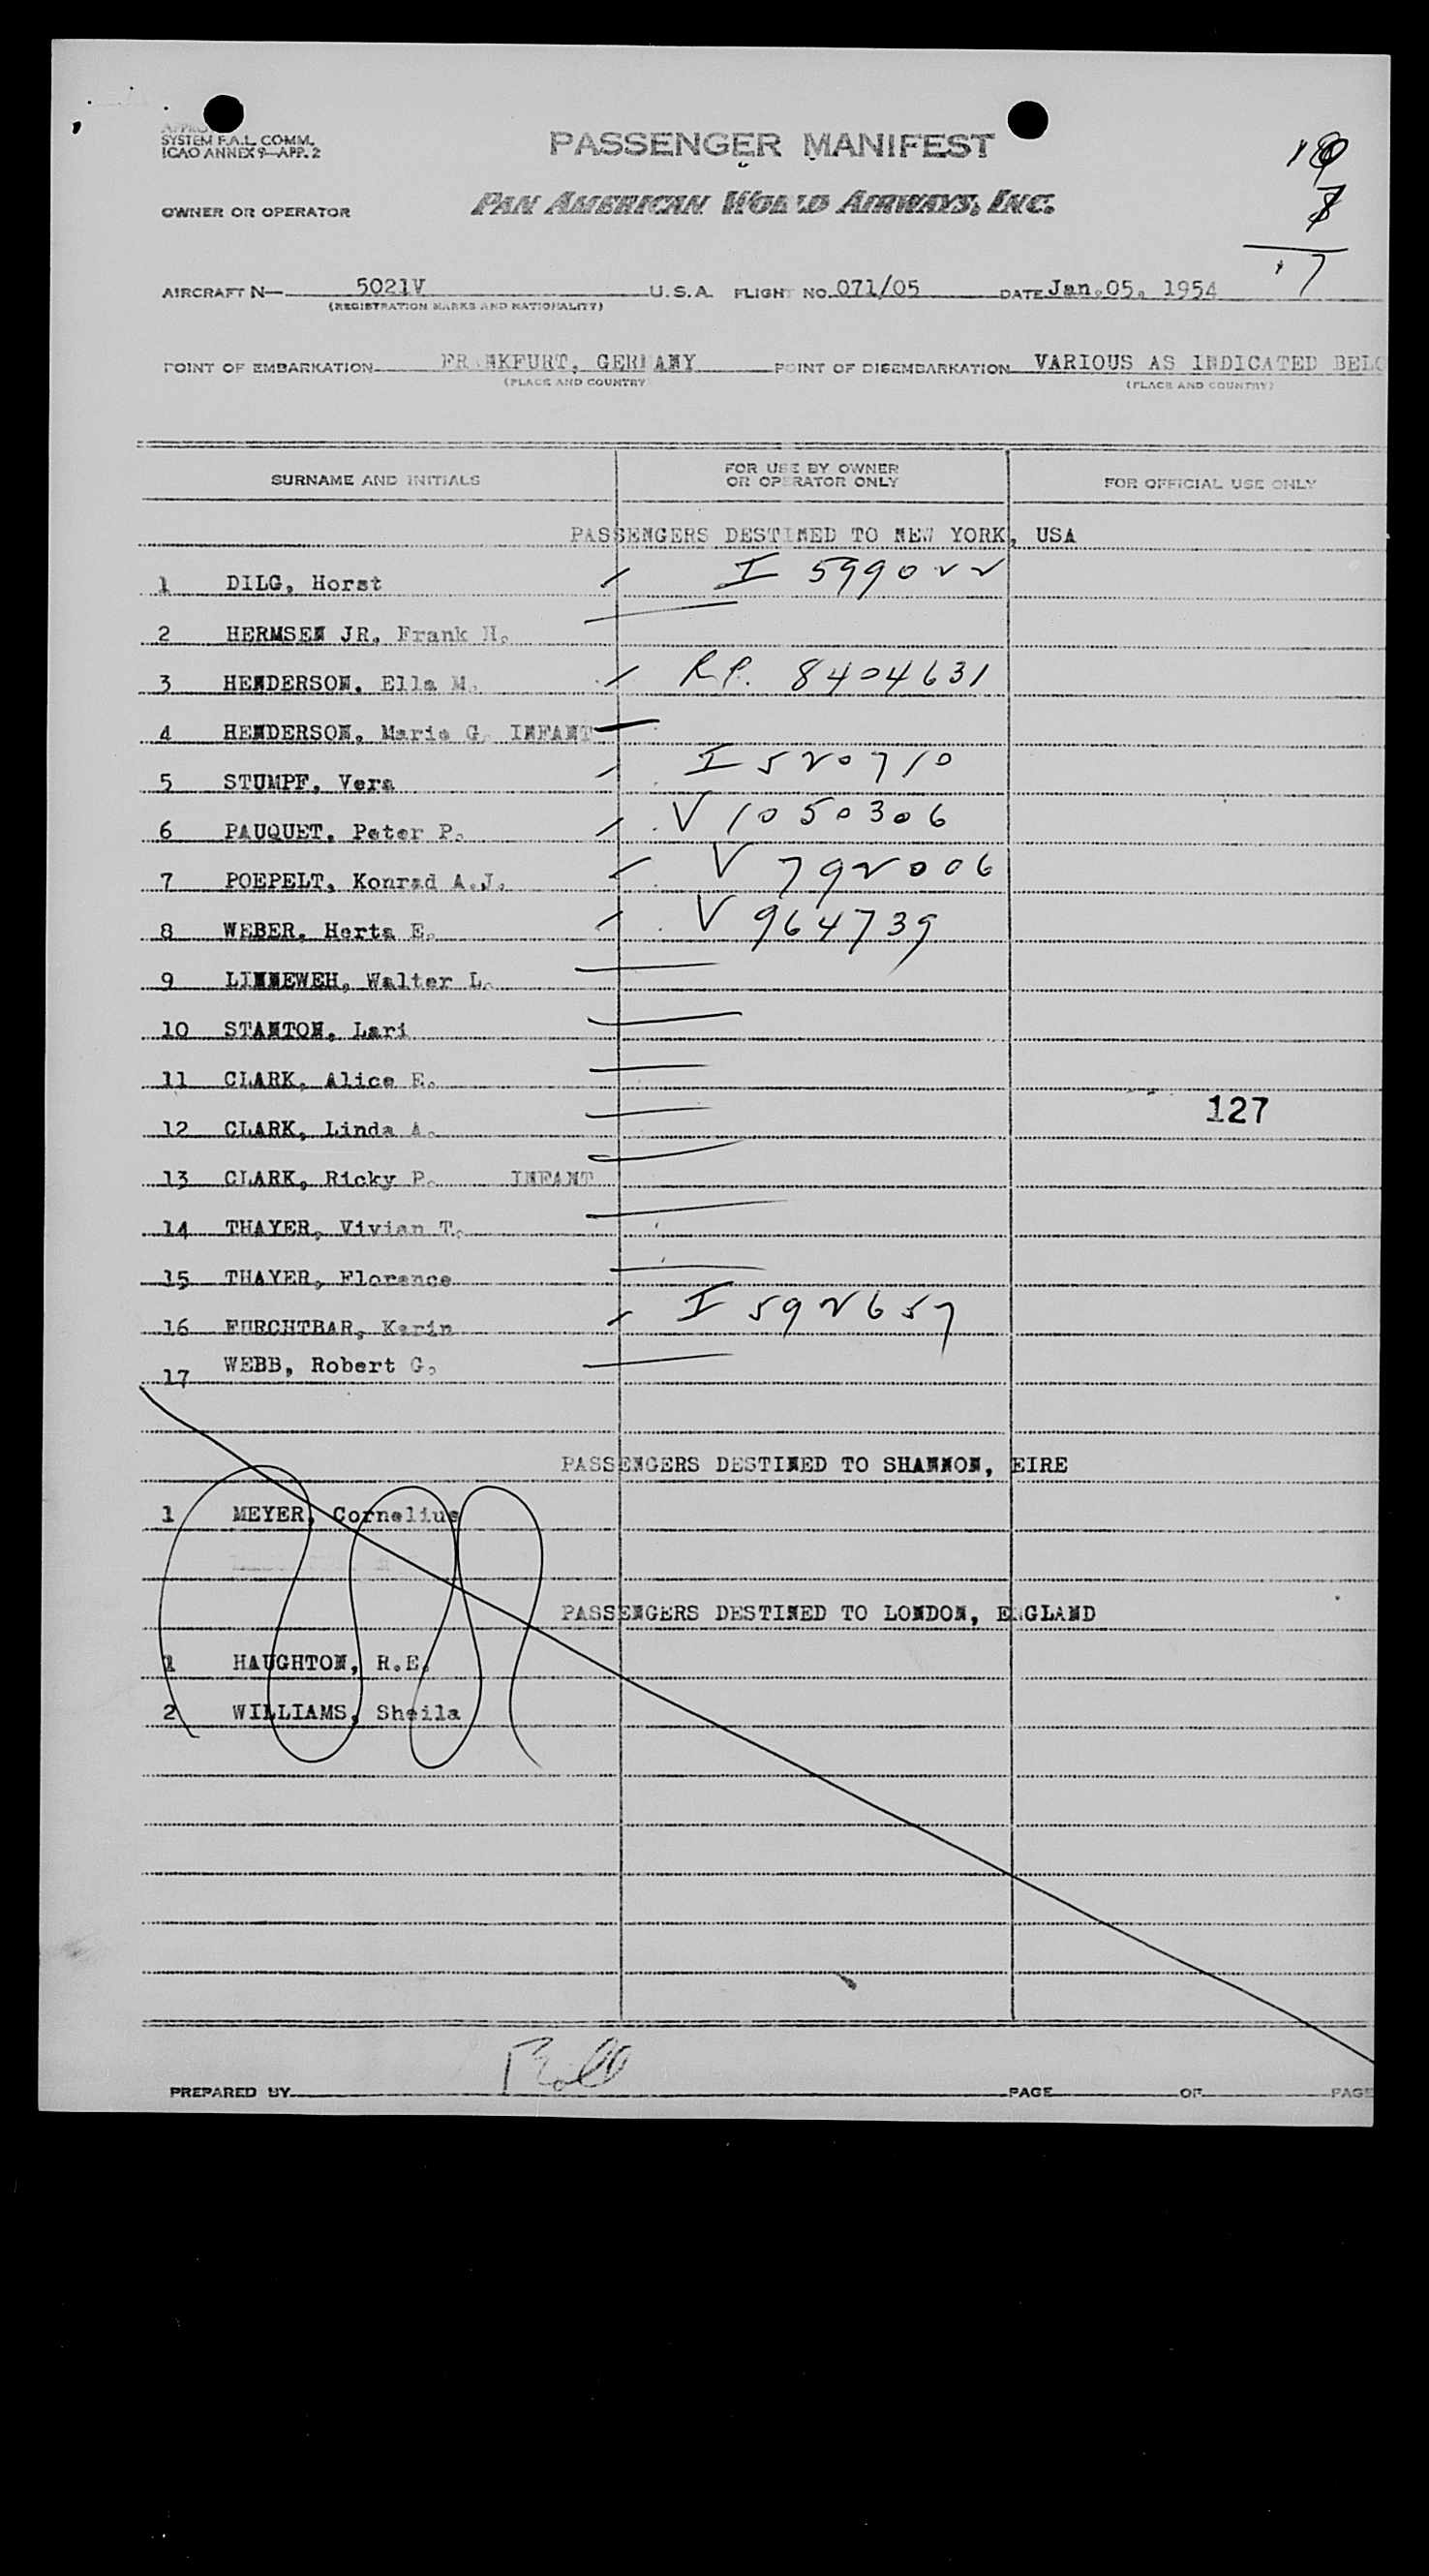 SYSTEM F.A.L. COMM.
ICAO ANNEX 9—APP. 2
PASSENGER MANIFEST
OWNER OR OPERATOR
PAN AMERICAN WORLD AIRWAYS, INC.
AIRCRAFT N— 5021V U.S.A. FLIGHT NO. 071/05 DATE Jan.05, 1954
(REGISTRATION MARKS AND NATIONALITY)
POINT OF EMBARKATION FRANKFURT, GERMANY POINT OF DISEMBARKATION VARIOUS AS INDICATED BELO
(PLACE AND COUNTRY) (PLACE AND COUNTRY)
SURNAME AND INITIALS FOR USE BY OWNER OR OPERATOR ONLY FOR OFFICIAL USE ONLY
PASSENGERS DESTINED TO NEW YORK, USA
1 DILG, Horst I 599022
2 HERMSEN JR, Frank H.
3 HENDERSON, Ella M. R.P. 8404631
4 HENDERSON, Marie G. INFANT
5 STUMPF, Vera I 520710
6 PAUQUET, Peter P. V 1050306
7 POEPELT, Konrad A.J. V 792006
8 WEBER, Herta E. V 964739
9 LINNEWEH, Walter L.
10 STANTON, Lari
11 CLARK, Alice E.
127
12 CLARK, Linda A.
13 CLARK, Ricky P. INFANT
14 THAYER, Vivian T.
15 THAYER, Florence
16 FURCHTBAR, Karin I 592657
17 WEBB, Robert G.
PASSENGERS DESTINED TO SHANNON, EIRE
1 MEYER, Cornelius
PASSENGERS DESTINED TO LONDON, ENGLAND
1 HAUGHTON, R.E.
2 WILLIAMS, Sheila
PREPARED BY PAGE OF PAGE